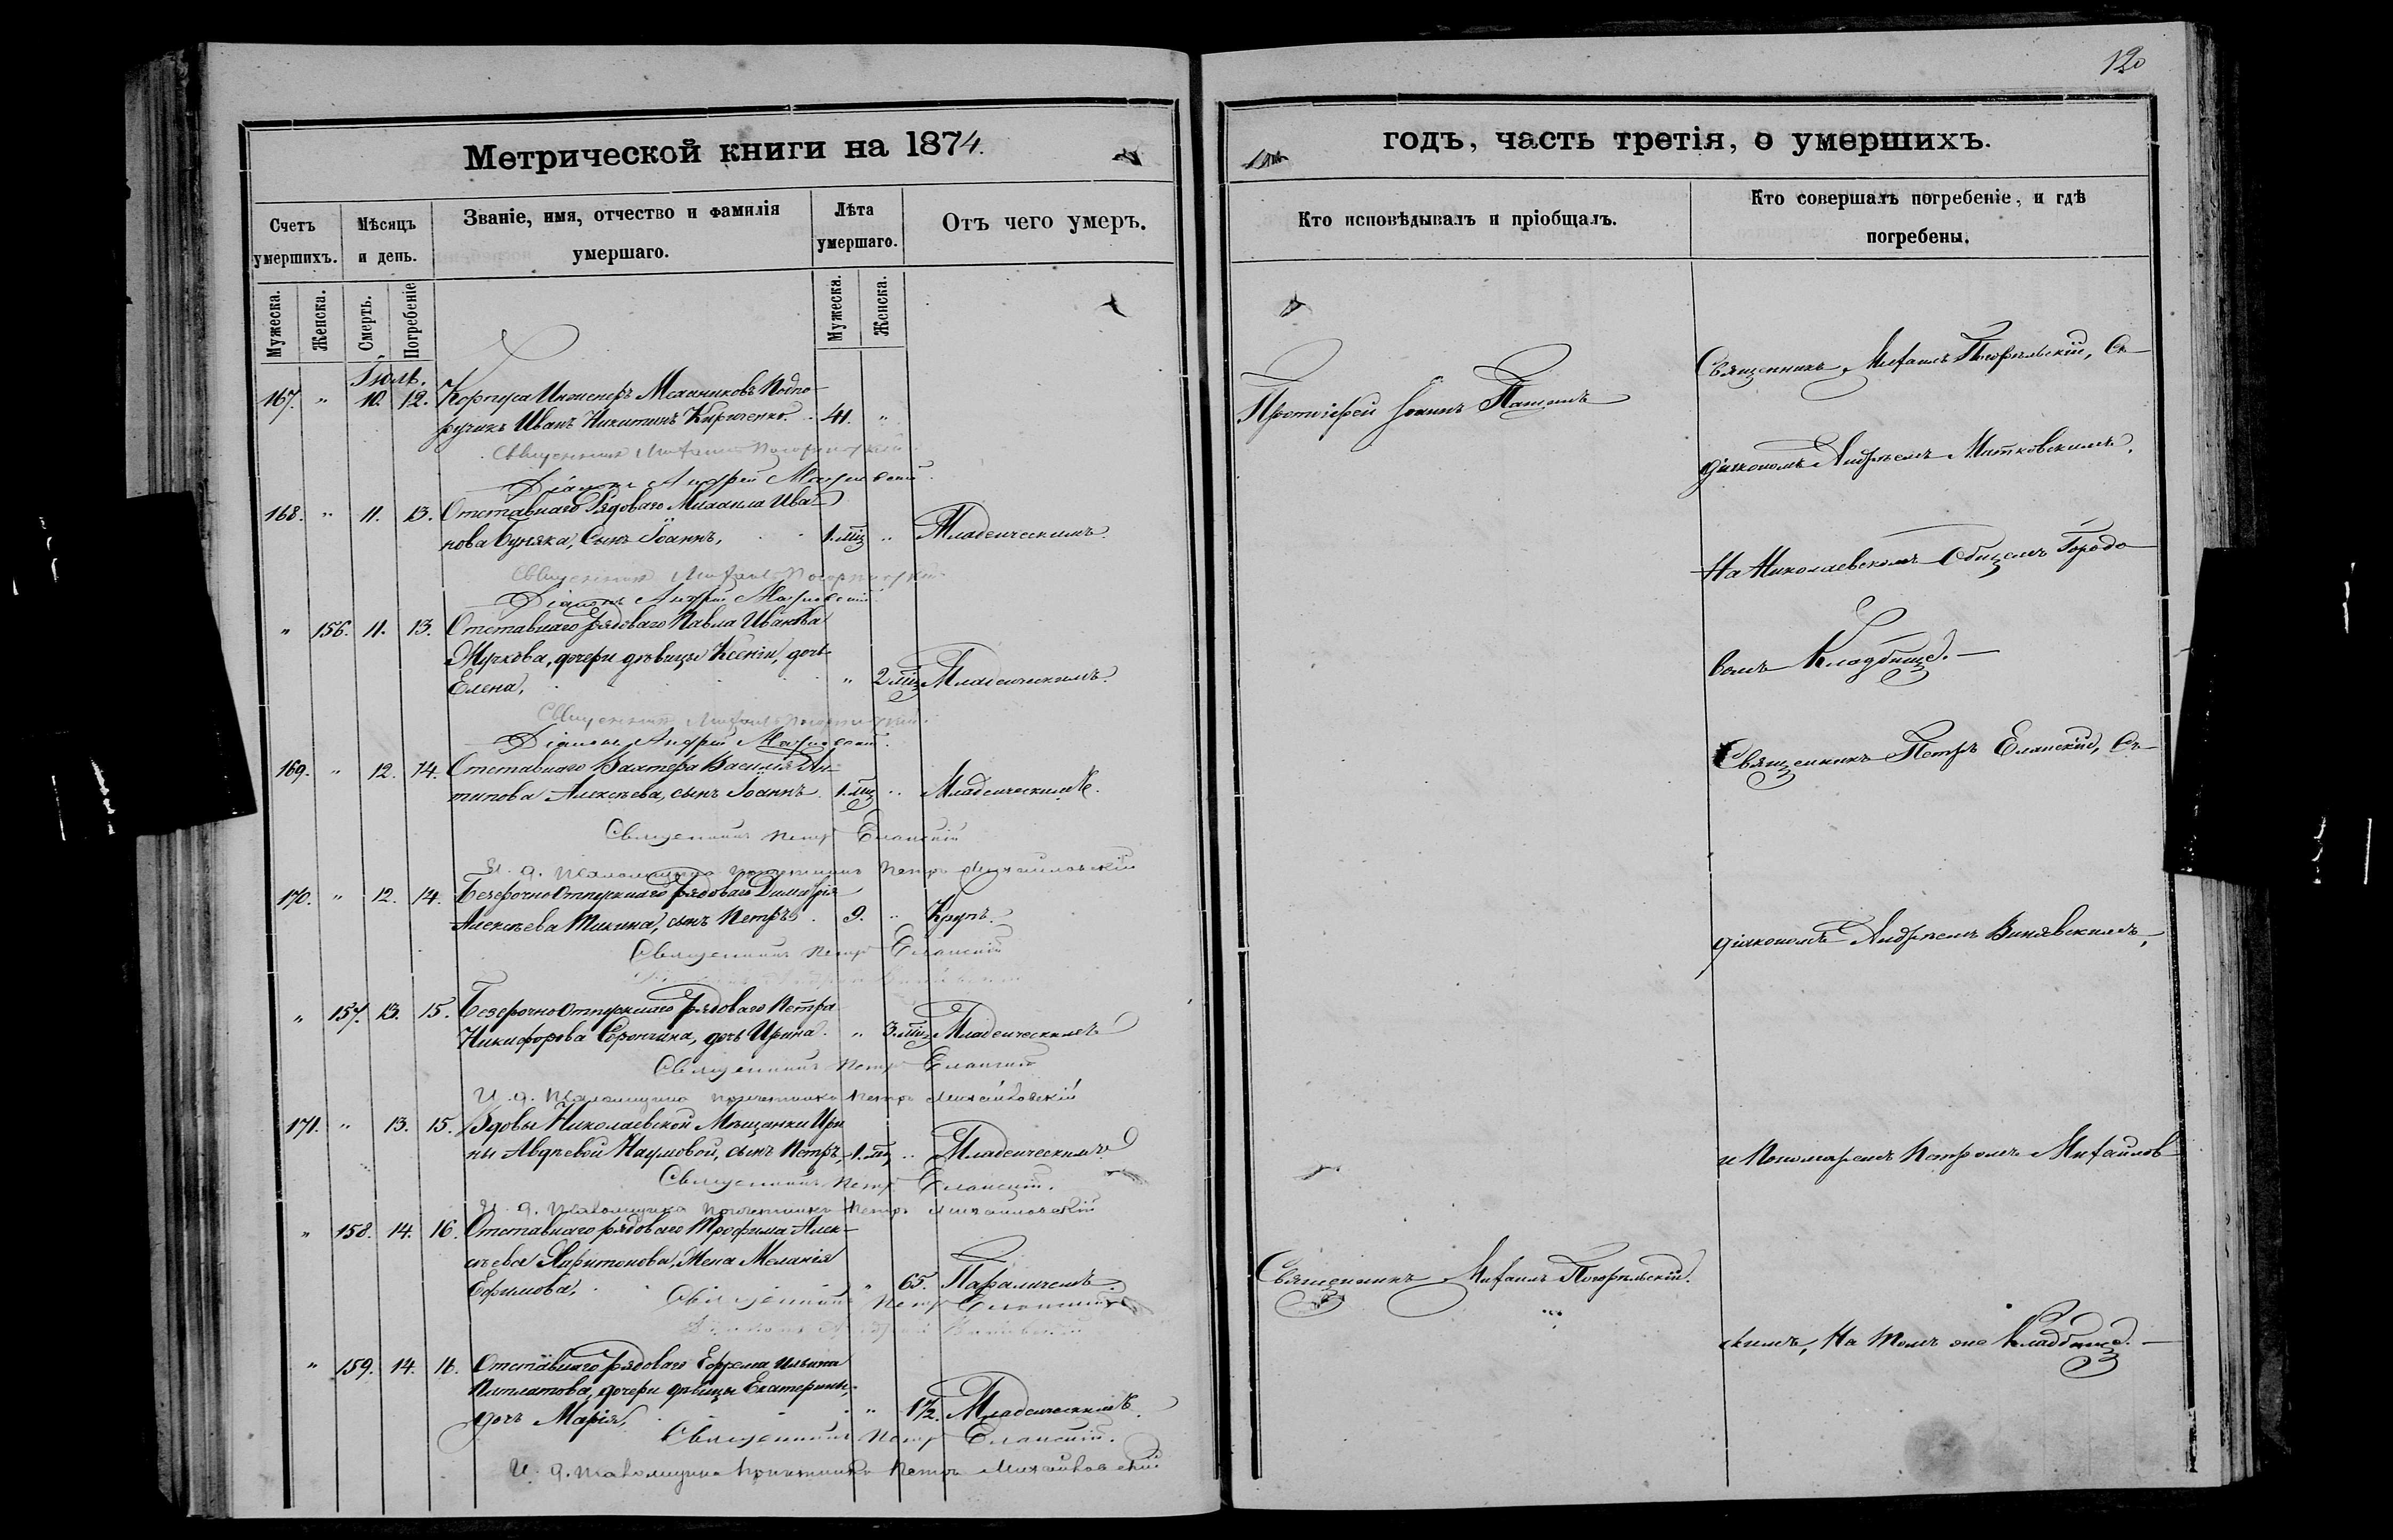 120
Метрической книги на 1874.
годъ, часть третія, о умершихъ.
Счетъ умершихъ.
Мѣсяцъ и день.
Званіе, имя, отчество и фамилія умершаго.
Лѣта умершаго.
Отъ чего умеръ.
Кто исповѣдывалъ и пріобщалъ.
Кто совершалъ погребеніе, и гдѣ погребены.
Мужеска.
Женска.
Смерть.
Погребеніе
Мужеска.
Женска.
Іюль.
167. " 10. 12. Корпуса Инженеръ Механиковъ Подпо-
ручикъ Иванъ Никитинъ Кириченко. 41. "
Протоіерей Іоаннъ
Священникъ Михаилъ Погорѣльскій
Діаконъ Андрей
168. " 11. 13. Отставнаго Рядоваго Михаила Ива-
нова Буняка, Сынъ Іоаннъ, 1. мц " Младенческимъ.
Священникъ Михаилъ Погорѣльскій
Діаконъ Андрей
" 156. 11. 13. Отставнаго рядоваго Павла Иванова
Жучкова, дочери дѣвицы Ксеніи, дочь
Елена, " 2 мц Младенческимъ.
Священникъ Михаилъ Погорѣльскій
Діаконъ Андрей
169. " 12. 14. Отставнаго Вахтера Василія Ан-
типова Алексѣева, сынъ Іоаннъ. 1. мц " Младенческимъ.
Священникъ Петръ Еланскій
И. д. Псаломщика причетникъ Петръ Михайловскій
170. " 12. 14. Безсрочноотпускнаго рядоваго Димитрія
Алексѣева Тикина, сынъ Петръ. 9. " Крупъ.
Священникъ Петръ Еланскій
" 157. 13. 15. Безсрочноотпускнаго рядоваго Петра
Никифорова Сорочкина, дочь Ирина. " 3. мц Младенческимъ
Священникъ Петръ Еланскій
И. д. Псаломщика причетникъ Петръ Михайловскій
171. " 13. 15. Вдовы Николаевской Мѣщанки Ири
ны Авдѣевой Наумовой, сынъ Петръ, 1. мц " Младенческимъ
Священникъ Петръ Еланскій.
И. д. Псаломщика причетникъ Петръ Михайловскій
" 158. 14. 16. Отставнаго рядоваго Трофима Алек-
сѣева Харитонова, Жена Меланія
Ефимова, " 65. Параличемъ.
Священникъ Михаилъ Погорѣльскій.
Священникъ Петръ Еланскій
" 159. 14. 16. Отставнаго рядоваго Ефрема Ильина
дочери дѣвицы Екатерины,
дочь Марія, " 1½. Младенческимъ.
Священникъ Петръ Еланскій.
И. д. Псаломщика причетникъ Петръ Михайловскій
Священникъ Михаилъ Погорѣльскій, Съ
діакономъ Андреемъ
На Николаевскомъ Общемъ Городо-
вомъ Кладбищѣ.
Священникъ Петръ Еланскій, Съ
діакономъ Андреемъ Винявскимъ,
и Пономаремъ Петромъ Михайлов-
скимъ, На томъ же Кладбищѣ.